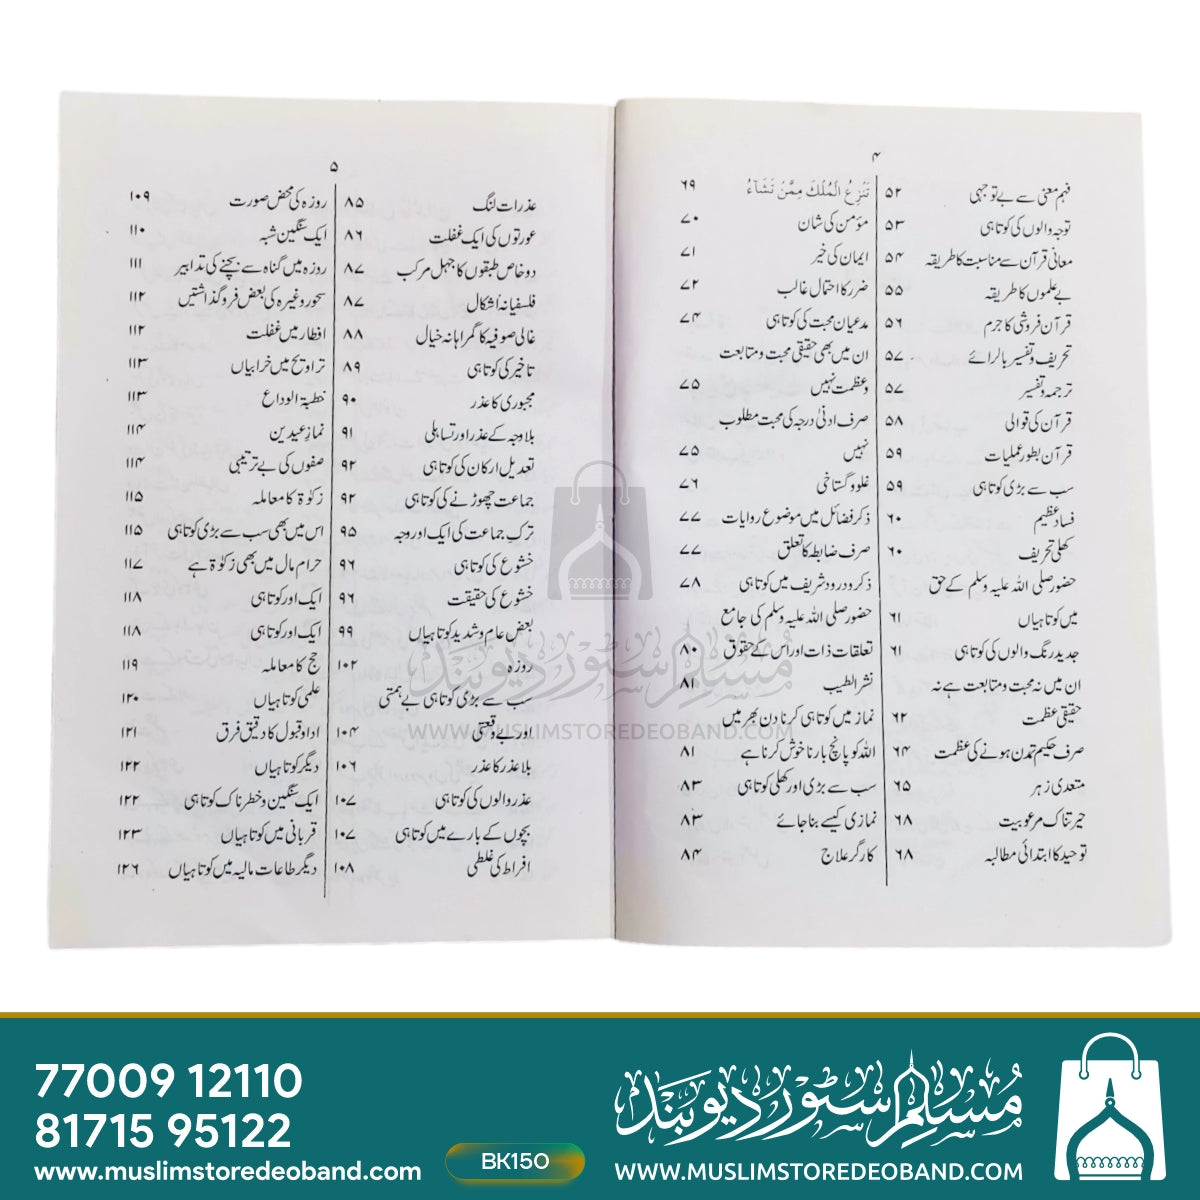 ۴
فہم معنی سے بے توجہی ۵۲
توجہ والوں کی کوتاہی ۵۳
معانی قرآن سے مناسبت کا طریقہ ۵۴
بے علموں کا طریقہ ۵۵
قرآن فروشی کا جرم ۵۶
تحریف و تفسیر بالرائے ۵۷
ترجمہ و تفسیر ۵۷
قرآن کی قوالی ۵۸
قرآن بطور عملیات ۵۹
سب سے بڑی کوتاہی ۵۹
فساد عظیم ۶۰
کھلی تحریف ۶۰
حضور صلی اللہ علیہ وسلم کے حق
میں کوتاہیاں ۶۱
جدید رنگ والوں کی کوتاہی ۶۱
ان میں نہ محبت و متابعت ہے نہ
حقیقی عظمت ۶۲
صرف حکیم تمدن ہونے کی عظمت ۶۴
متعدی زہر ۶۵
حیرتناک مرعوبیت ۶۸
توحید کا ابتدائی مطالبہ ۶۸
تَنْزِعُ الْمُلْكَ مِمَّنْ تَشَاءُ ۶۹
مؤمن کی شان ۷۰
ایمان کی خیر ۷۱
ضرر کا احتمال غالب ۷۲
مدعیان محبت کی کوتاہی ۷۴
ان میں بھی حقیقی محبت و متابعت
و عظمت نہیں ۷۵
صرف ادنیٰ درجہ کی محبت مطلوب
نہیں ۷۵
غلو و گستاخی ۷۶
ذکر فضائل میں موضوع روایات ۷۷
صرف ضابطہ کا تعلق ۷۷
ذکر و درود شریف میں کوتاہی ۷۸
حضور صلی اللہ علیہ وسلم کی جامع
تعلقات ذات اور اس کے حقوق ۸۰
نشر الطیب ۸۱
نماز میں کوتاہی کرنا دن بھر میں
اللہ کو پانچ بار ناخوش کرنا ہے ۸۱
سب سے بڑی اور کھلی کوتاہی ۸۳
نمازی کیسے بنا جائے ۸۳
کارگر علاج ۸۴
۵
عذرات لنگ ۸۵
عورتوں کی ایک غفلت ۸۶
دو خاص طبقوں کا جہل مرکب ۸۷
فلسفیانہ اشکال ۸۷
غالی صوفیہ کا گمراہانہ خیال ۸۸
تاخیر کی کوتاہی ۸۹
مجبوری کا عذر ۹۰
بلاوجہ کے عذر اور تساہلی ۹۱
تعدیل ارکان کی کوتاہی ۹۲
جماعت چھوڑنے کی کوتاہی ۹۲
ترکِ جماعت کی ایک اور وجہ ۹۵
خشوع کی کوتاہی ۹۶
خشوع کی حقیقت ۹۶
بعض عام و شدید کوتاہیاں ۹۹
روزہ ۱۰۲
سب سے بڑی کوتاہی بے ہمتی
اور بے وقعتی ۱۰۴
بلا عذر کا عذر ۱۰۶
عذر والوں کی کوتاہی ۱۰۷
بچوں کے بارے میں کوتاہی ۱۰۷
افراط کی غلطی ۱۰۸
روزہ کی محض صورت ۱۰۹
ایک سنگین شبہ ۱۱۰
روزہ میں گناہ سے بچنے کی تدابیر ۱۱۱
سحور وغیرہ کی بعض فروگذاشتیں ۱۱۲
افطار میں غفلت ۱۱۲
تراویح میں خرابیاں ۱۱۳
خطبۃ الوداع ۱۱۳
نمازِ عیدین ۱۱۴
صفوں کی بے ترتیبی ۱۱۴
زکوٰۃ کا معاملہ ۱۱۵
اس میں بھی سب سے بڑی کوتاہی ۱۱۵
حرام مال میں بھی زکوٰۃ ہے ۱۱۷
ایک اور کوتاہی ۱۱۸
ایک اور کوتاہی ۱۱۸
حج کا معاملہ ۱۱۹
علمی کوتاہیاں ۱۲۰
ادا و قبول کا دقیق فرق ۱۲۱
دیگر کوتاہیاں ۱۲۲
ایک سنگین و خطرناک کوتاہی ۱۲۲
قربانی میں کوتاہیاں ۱۲۳
دیگر طاعات مالیہ میں کوتاہیاں ۱۲۶
مسلم سٹور دیوبند
WWW.MUSLIMSTOREDEOBAND.COM
77009 12110
81715 95122
www.muslimstoredeoband.com
BK150
مسلم سٹور دیوبند
WWW.MUSLIMSTOREDEOBAND.COM